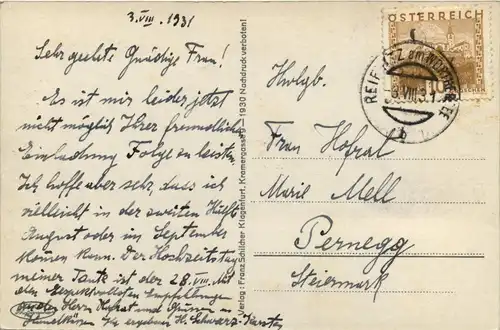 3. VIII. 1931
Sehr geehrte Gnädige Frau!
Es ist mir leider jetzt
nicht möglich Ihrer freundlichen
Einladung Folge zu leisten.
Ich hoffe aber sehr, dass ich
vielleicht in der zweiten Hälfte
August oder im September
kommen kann. Der Hochzeitstag
meiner Tante ist der 28. VIII. Mit
den respektvollsten Empfehlungen
an den Herrn Hofrat und Grüssen an
Ihr ergebener H. Schwarz-
Verlag: Franz Schilcher Klagenfurt, Kramergasse 9 — 1930 Nachdruck verboten!
ÖSTERREICH
10
REIFNITZ AM WÖRTHERSEE
3.VIII.31
Hwlgb.
Frau Hofrat
Marie Mell
Pernegg
Steiermark